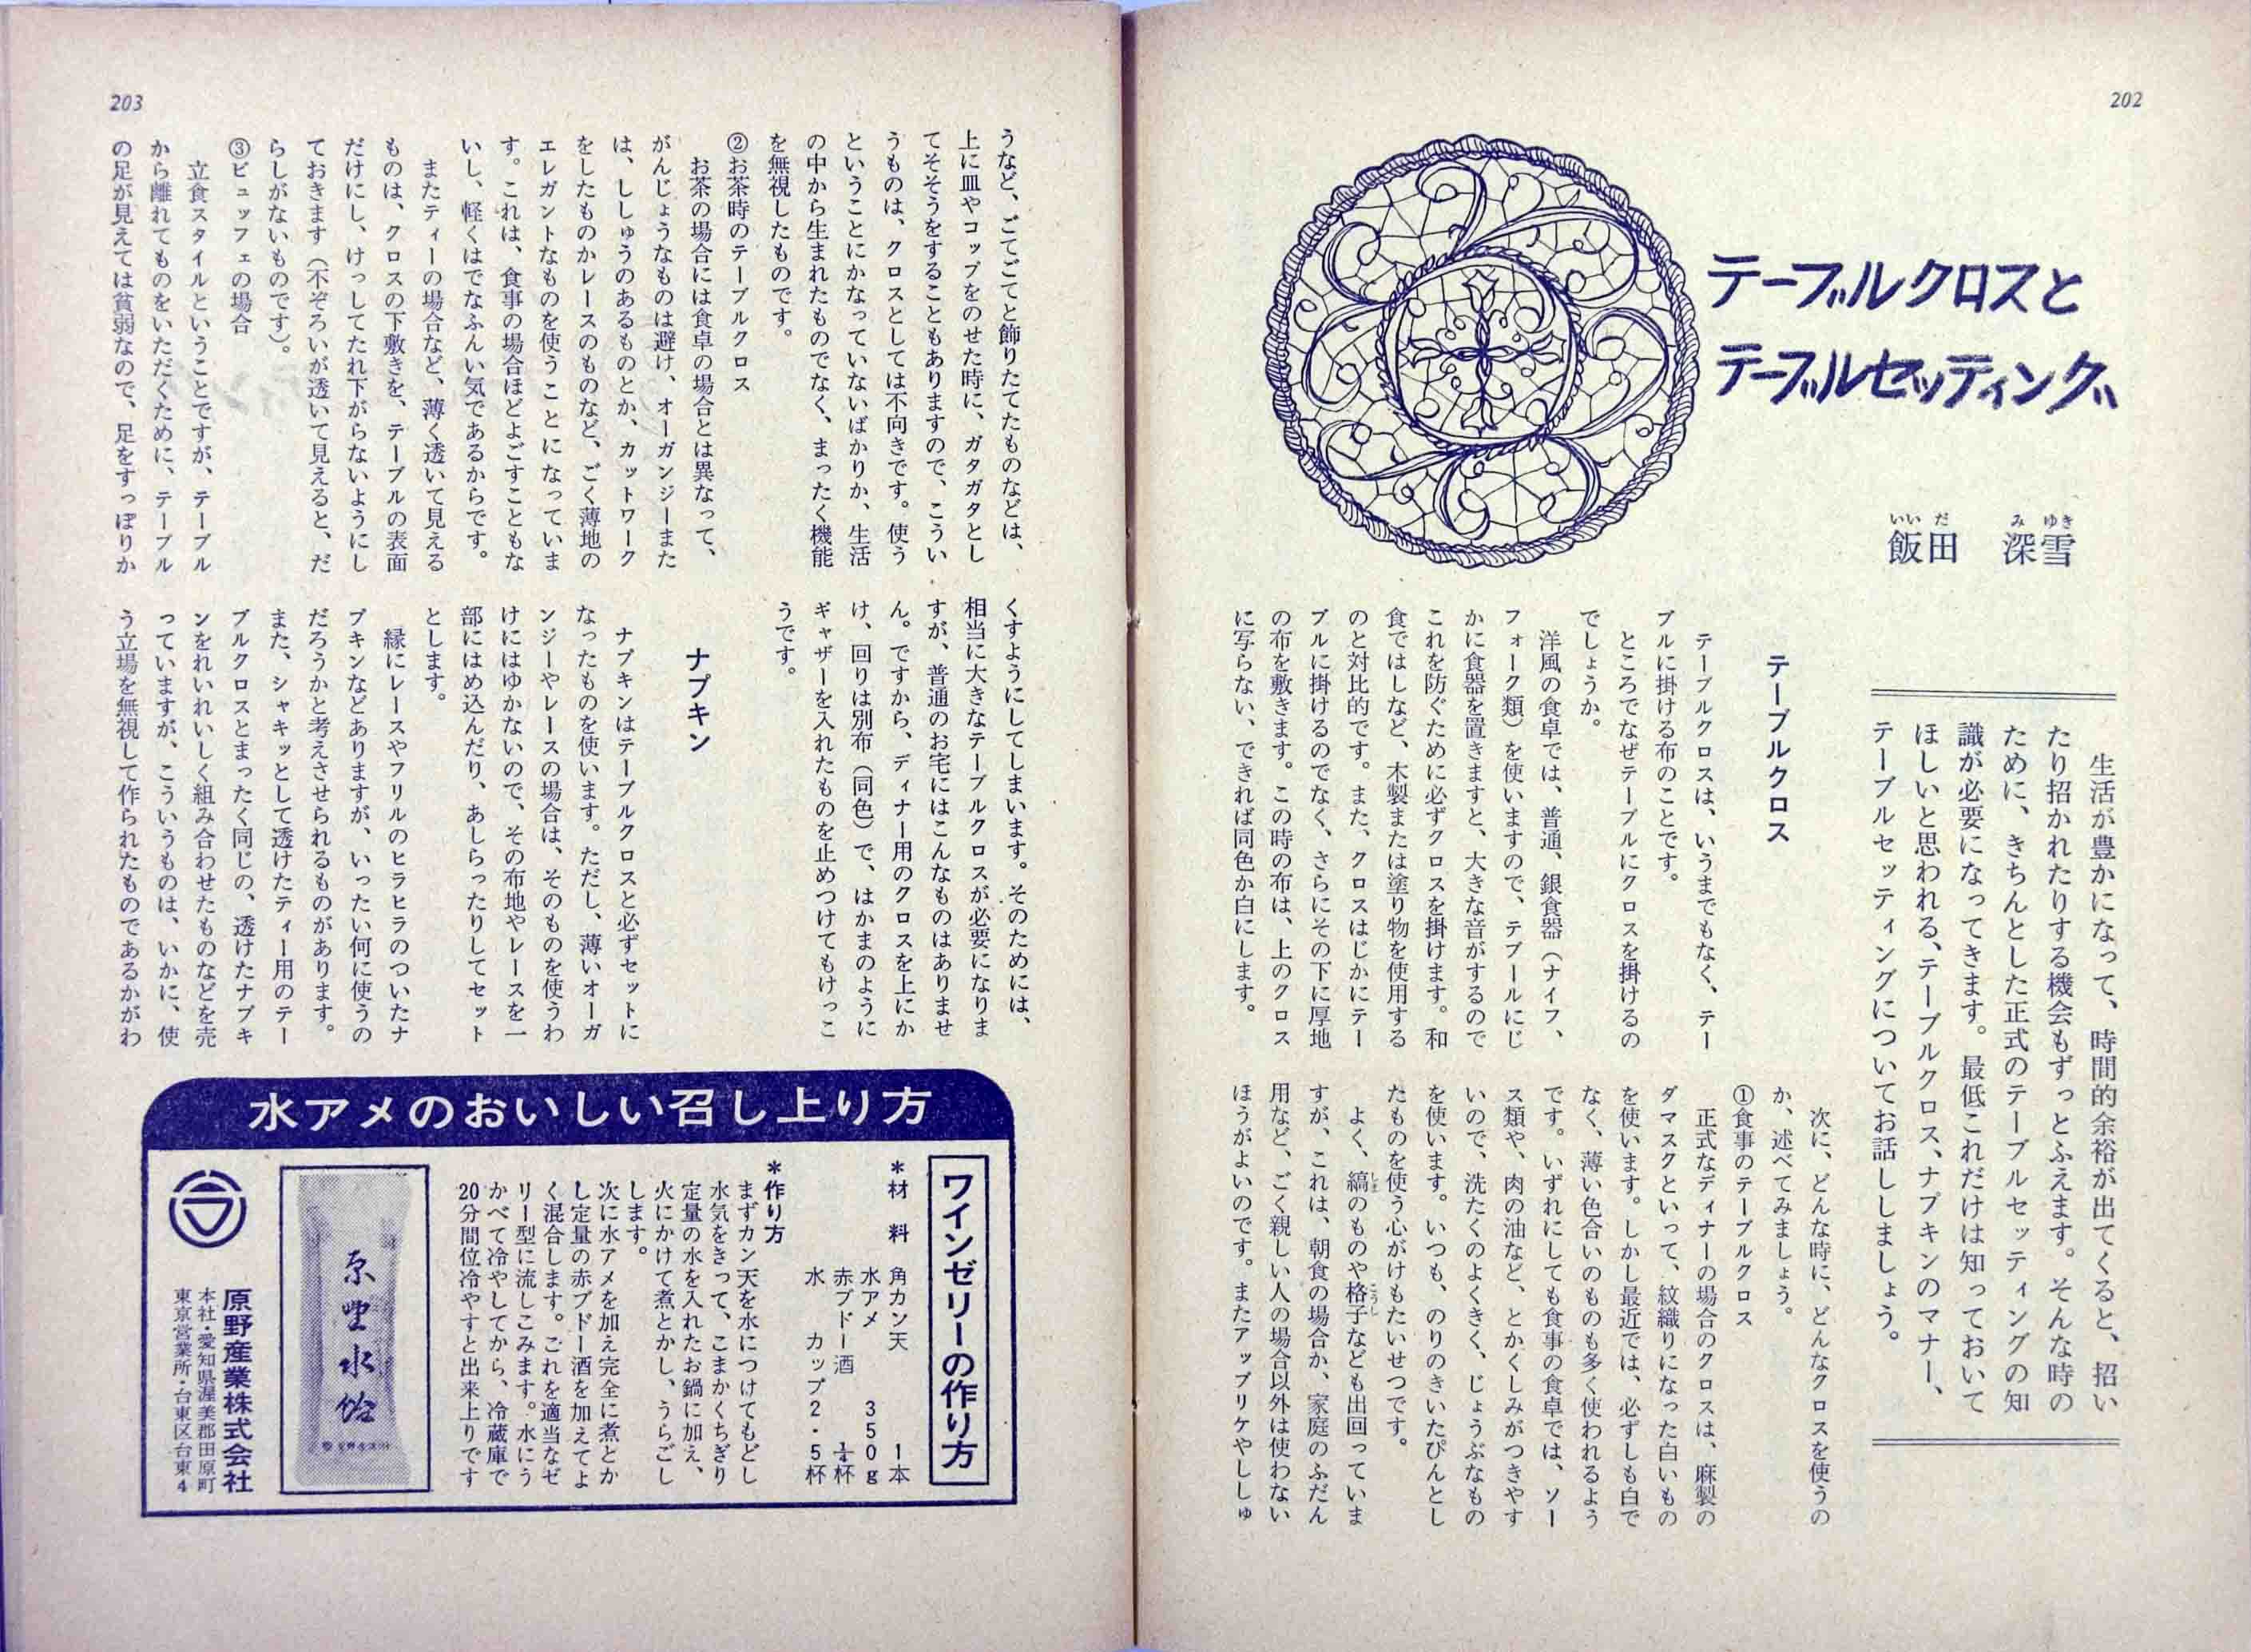 202
テーブルクロスと
テーブルセッティング
いいだ みゆき
飯田 深雪
生活が豊かになって、時間的余裕が出てくると、招い
たり招かれたりする機会もずっとふえます。そんな時の
ために、きちんとした正式のテーブルセッティングの知
識が必要になってきます。最低これだけは知っておいて
ほしいと思われる、テーブルクロス、ナプキンのマナー、
テーブルセッティングについてお話ししましょう。
テーブルクロス
テーブルクロスは、いうまでもなく、テー
ブルに掛ける布のことです。
ところでなぜテーブルにクロスを掛けるの
でしょうか。
洋風の食卓では、普通、銀食器（ナイフ、
フォーク類）を使いますので、テブールにじ
かに食器を置きますと、大きな音がするので
これを防ぐために必ずクロスを掛けます。和
食ではしなど、木製または塗り物を使用する
のと対比的です。また、クロスはじかにテー
ブルに掛けるのでなく、さらにその下に厚地
の布を敷きます。この時の布は、上のクロス
に写らない、できれば同色か白にします。
次に、どんな時に、どんなクロスを使うの
か、述べてみましょう。
①食事のテーブルクロス
正式なディナーの場合のクロスは、麻製の
ダマスクといって、紋織りになった白いもの
を使います。しかし最近では、必ずしも白で
なく、薄い色合いのものも多く使われるよう
です。いずれにしても食事の食卓では、ソー
ス類や、肉の油など、とかくしみがつきやす
いので、洗たくのよくきく、じょうぶなもの
を使います。いつも、のりのきいたぴんとし
たものを使う心がけもたいせつです。
よく、縞のものや格子なども出回っていま
しま こうし
すが、これは、朝食の場合か、家庭のふだん
用など、ごく親しい人の場合以外は使わない
ほうがよいのです。またアップリケやししゅ
203
うなど、ごてごてと飾りたてたものなどは、
上に皿やコップをのせた時に、ガタガタとし
てそそうをすることもありますので、こうい
うものは、クロスとしては不向きです。使う
ということにかなっていないばかりか、生活
の中から生まれたものでなく、まったく機能
を無視したものです。
②お茶時のテーブルクロス
お茶の場合には食卓の場合とは異なって、
がんじょうなものは避け、オーガンジーまた
は、ししゅうのあるものとか、カットワーク
をしたものかレースのものなど、ごく薄地の
エレガントなものを使うことになっていま
す。これは、食事の場合ほどよごすこともな
いし、軽くはでなふんい気であるからです。
またティーの場合など、薄く透いて見える
ものは、クロスの下敷きを、テーブルの表面
だけにし、けっしてたれ下がらないようにし
ておきます（不ぞろいが透いて見えると、だ
らしがないものです）。
③ビュッフェの場合
立食スタイルということですが、テーブル
から離れてものをいただくために、テーブル
の足が見えては貧弱なので、足をすっぽりか
くすようにしてしまいます。そのためには、
相当に大きなテーブルクロスが必要になりま
すが、普通のお宅にはこんなものはありませ
ん。ですから、ディナー用のクロスを上にか
け、回りは別布（同色）で、はかまのように
ギャザーを入れたものを止めつけてもけっこ
うです。
ナプキン
ナプキンはテーブルクロスと必ずセットに
なったものを使います。ただし、薄いオーガ
ンジーやレースの場合は、そのものを使うわ
けにはゆかないので、その布地やレースを一
部にはめ込んだり、あしらったりしてセット
とします。
縁にレースやフリルのヒラヒラのついたナ
プキンなどありますが、いったい何に使うの
だろうかと考えさせられるものがあります。
また、シャキッとして透けたティー用のテー
ブルクロスとまったく同じの、透けたナプキ
ンをれいれいしく組み合わせたものなどを売
っていますが、こういうものは、いかに、使
う立場を無視して作られたものであるかがわ
水アメのおいしい召し上り方
ワインゼリーの作り方
＊材 料 角カン天 1本
水アメ 350g
赤ブドー酒 ¼杯
水 カップ2・5杯
＊作り方
まずカン天を水につけてもどし
水気をきって、こまかくちぎり
定量の水を入れたお鍋に加え、
火にかけて煮とかし、うらごし
します。
次に水アメを加え完全に煮とか
し定量の赤ブドー酒を加えてよ
く混合します。これを適当なゼ
リー型に流しこみます。水にう
かべて冷やしてから、冷蔵庫で
20分間位冷やすと出来上りです
原野水飴
原野産業株式会社
本社・愛知県渥美郡田原町
東京営業所・台東区台東4